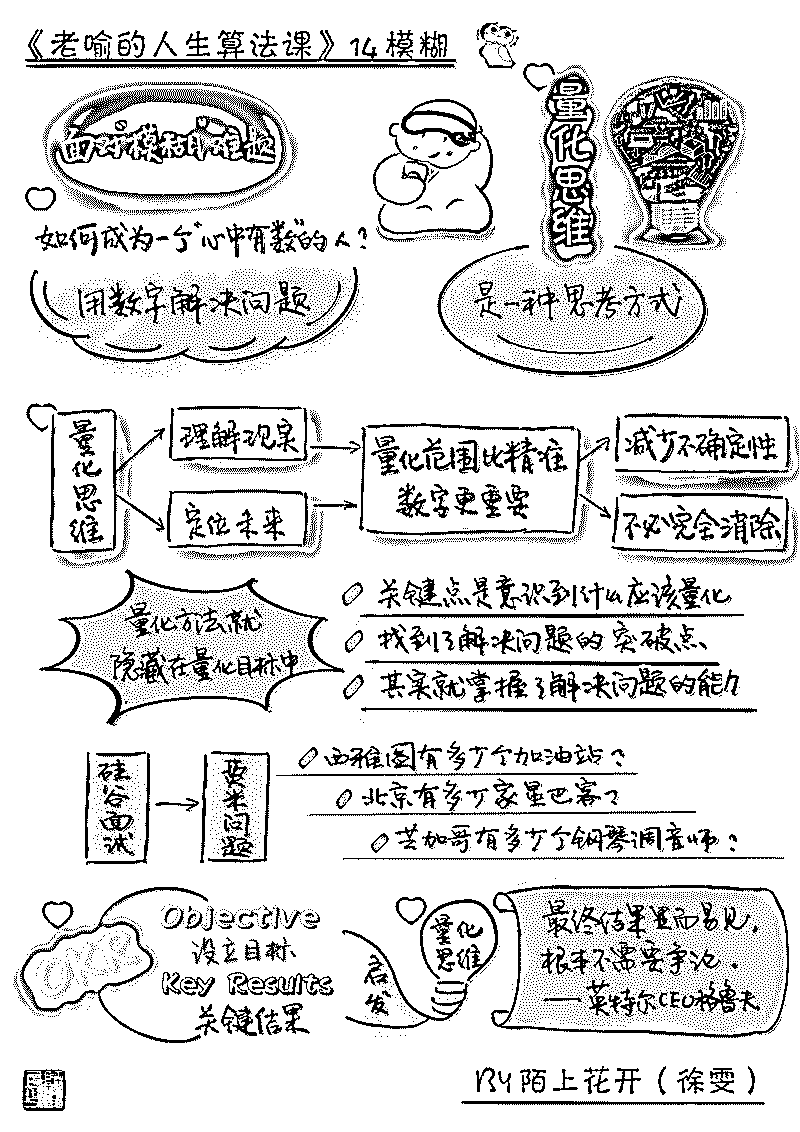 《老喻的人生算法课》14模糊
面对模糊难题
量化思维
如何成为一个"心中有数"的人？
用数字解决问题
是一种思考方式
量化思维
理解现实
定位未来
量化范围比精准
数字更重要
减少不确定性
不必完全消除
量化方法就
隐藏在量化目标中
关键点是意识到什么应该量化
找到了解决问题的突破点
其实就掌握了解决问题的能力
硅谷面试
费米问题
西雅图有多少个加油站？
北京有多少家星巴客？
芝加哥有多少个钢琴调音师？
OKR
Objective
设立目标
Key Results
关键结果
启发
量化
思维
最终结果显而易见，
根本不需要争论。
——英特尔CEO格鲁夫
BY陌上花开（徐雯）